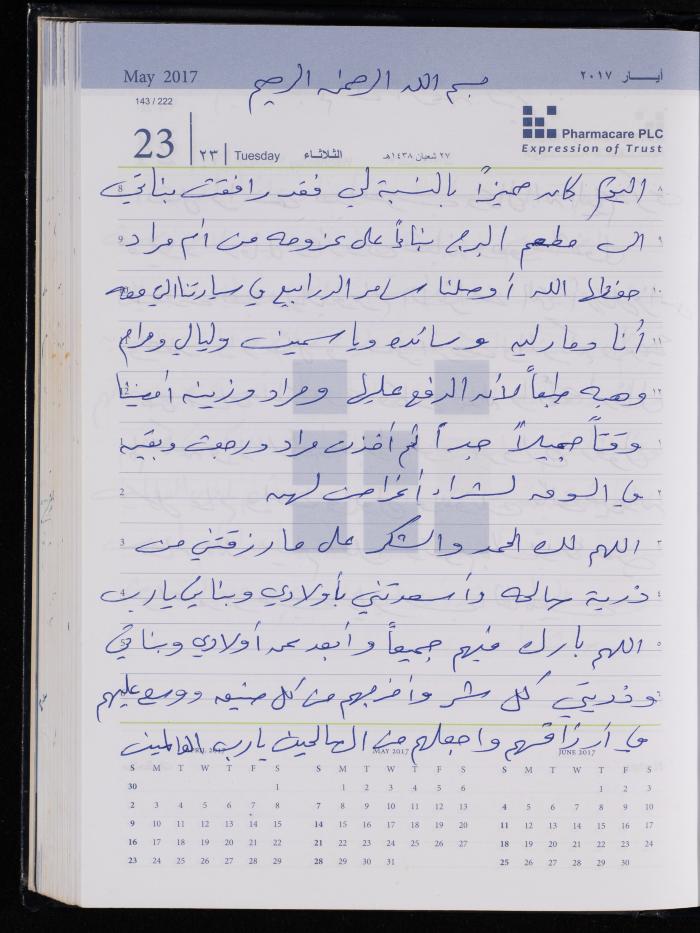 May 2017
أيــار ٢٠١٧
بسم الله الرحمن الرحيم
143 / 222
23
٢٣
Tuesday
الثلاثاء
٢٧ شعبان ١٤٣٨هـ
Pharmacare PLC
Expression of Trust
8 اليوم كان مميزاً بالنسبة لي فقد رافقت بناتي ٨
9 الى مطعم البرج بناءً على عزومه من أم مراد ٩
حفظها الله أوصلنا سامر الدرابيع في سيارتنا الي معه ١٠
أنا ومارليه وسائده وياسمين وليالي ومرام ١١
وهبه طبعاً لأن الدفع عليها ومراد وزينه أمضينا ١٢
وقتاً جميلاً جداً ثم أخذت مراد ورجعت وبقيه ١
2 في السوق لشراء أغراض لهن ٢
3 اللهم لك الحمد والشكر على ما رزقتني من ٣
4 ذرية صالحه وأسعدتني بأولادي وبناتي يا رب ٤
5 اللهم بارك فيهم جميعاً وأبعد عن أولادي وبناتي ٥
وذريتي كل شر وأخرجهم من كل ضيقه ووسع عليهم
في أرزاقهم واجعلهم من الصالحين يا رب العالمين
APRIL 2017
S M T W T F S
30 1
2 3 4 5 6 7 8
9 10 11 12 13 14 15
16 17 18 19 20 21 22
23 24 25 26 27 28 29
MAY 2017
S M T W T F S
1 2 3 4 5 6
7 8 9 10 11 12 13
14 15 16 17 18 19 20
21 22 23 24 25 26 27
28 29 30 31
JUNE 2017
S M T W T F S
1 2 3
4 5 6 7 8 9 10
11 12 13 14 15 16 17
18 19 20 21 22 23 24
25 26 27 28 29 30